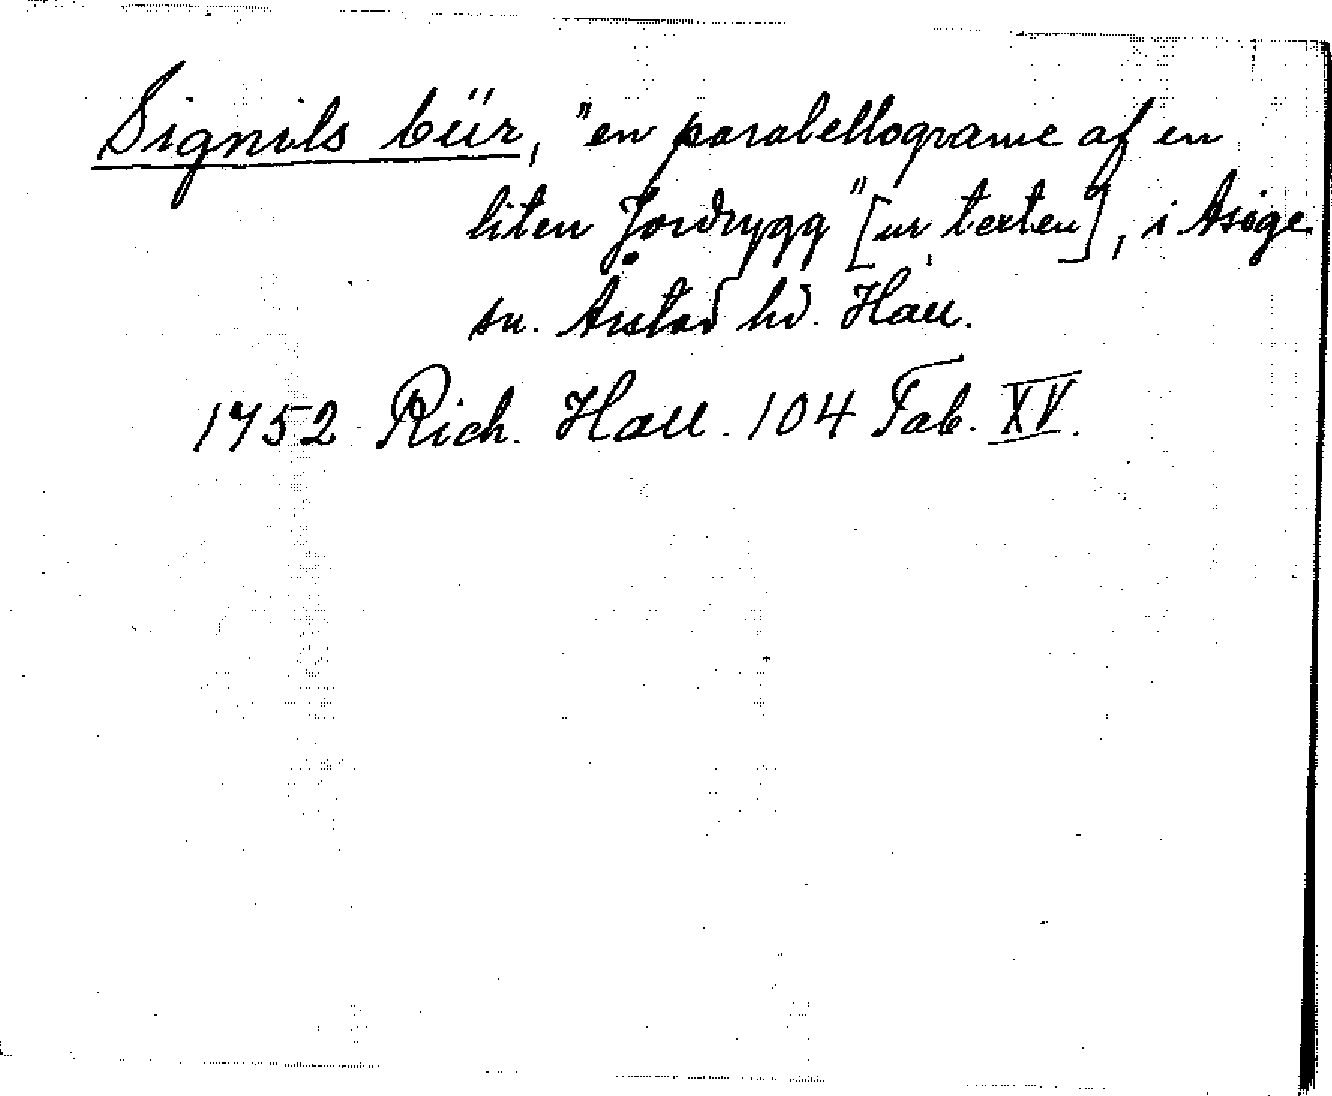 Signils büür, "en parabellograme af en
liten Jordrygg" [ur texten], i Asige
sn. Årstad hd. Hall.
1752 Rich. Hall. 104 Tab. XV.